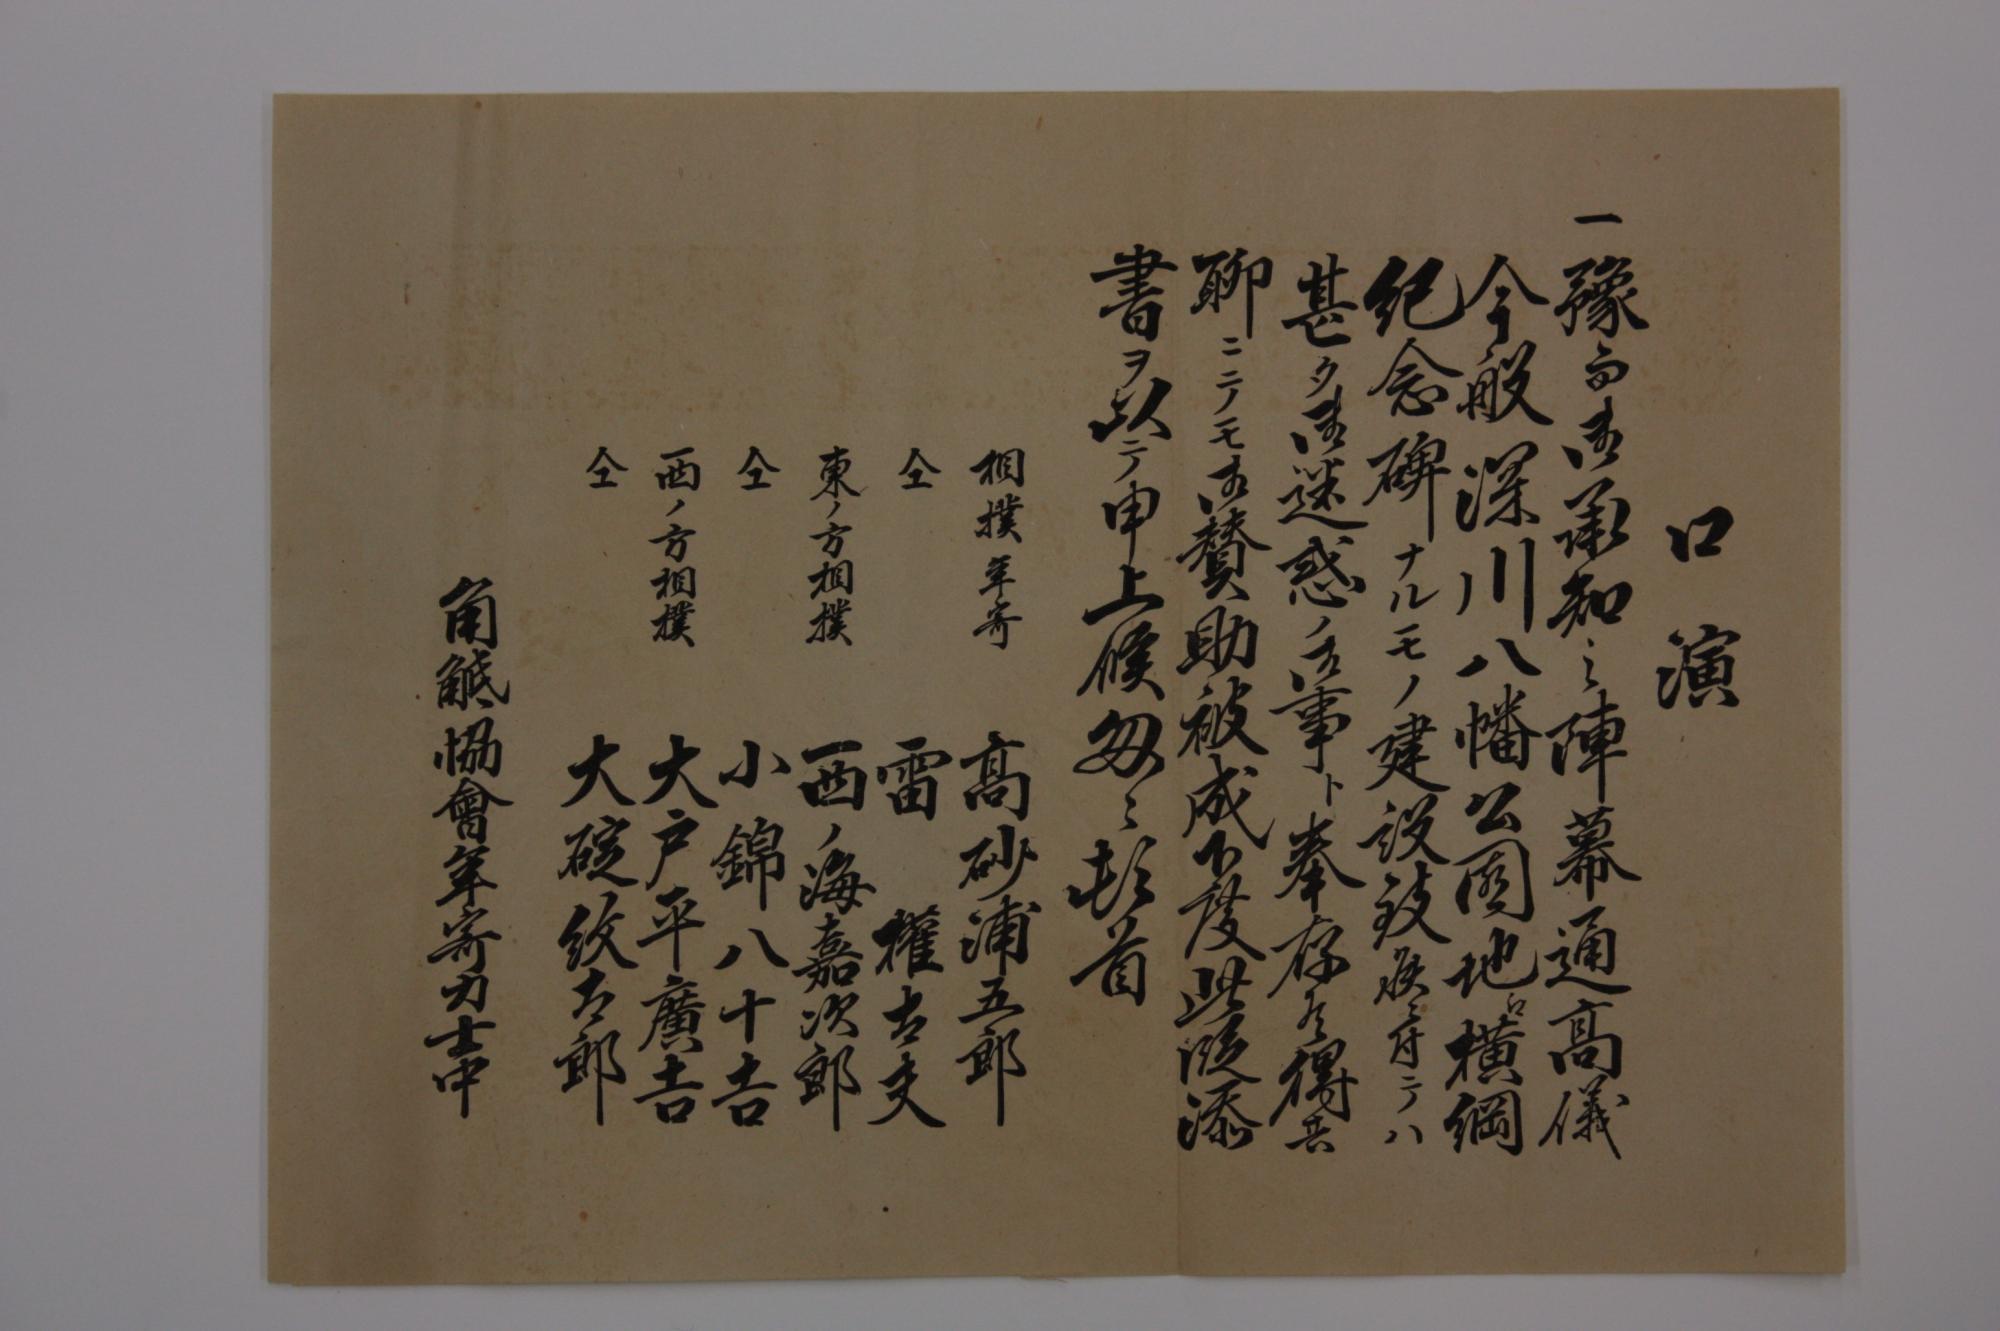 口演
一豫而御承知之陣幕通高儀
今般深川八幡公園地ニ横綱
紀念碑ナルモノ建設致候ニ付テハ
甚タ御迷惑ノ御事ト奉存候得共
聊ニテモ御賛助被成下度此段添
書ヲ以テ申上候匆々頓首
相撲年寄 高砂浦五郎
仝 雷權太夫
東ノ方相撲 西ノ海嘉次郎
仝 小錦八十吉
西ノ方相撲 大戸平廣吉
仝 大碇紋太郎
角觝協會年寄力士中